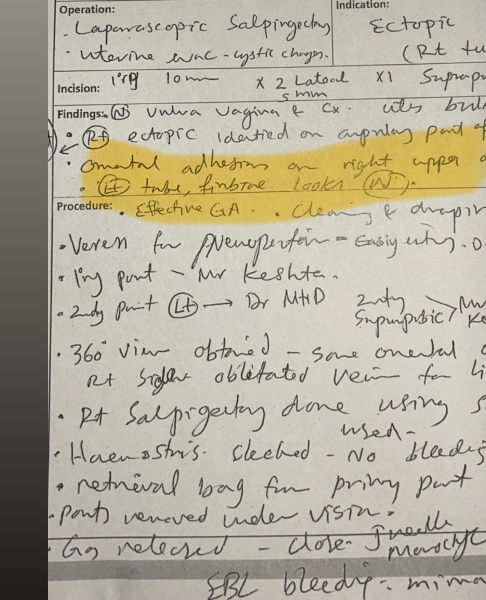 Operation:
Indication:
. Laparascopic Salpingectomy
Ectopic
. Uterine evac - cystic changes.
(Rt tu
Incision: 1'ry 10mm x 2 Lateral x1 Suprapu
5mm
Findings: (N) Vulva Vagina & Cx. uts bul
. (Rt) ectopic identied on part of
. omental adhesions on right upper
. (Lt) tube, fimbrae looks (N).
Procedure: . Effective GA . . Cleaning & draping
. Veress for - Easy entry.
. 1'ry port - Mr Keshta.
. 2ndy port (Lt) → Dr
2ndry
Suprapubic
. 360° view obtained - some omental
Rt side oblitated veiw for li
. Rt Salpigectomy done using
used -
. Haemostasis checked - No bleeding
. retrieval bag from primy port
. Ports removed under vision.
. Gas released - close J needle
Monocryl
EBL bleeding - minima